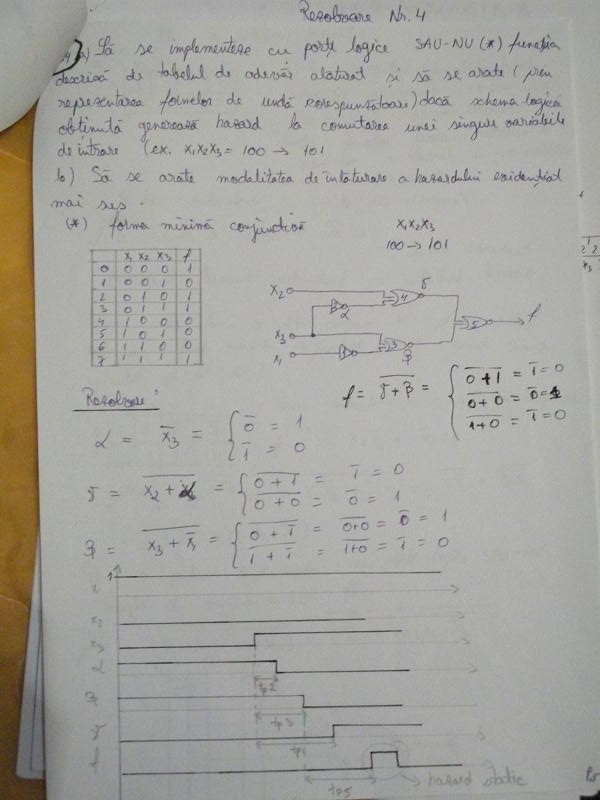 Rezolvare Nr. 4
a) Să se implementeze cu porți logice SAU-NU (*) funcția
descrisă de tabelul de adevăr alăturat și să se arate (prin
reprezentarea formelor de undă corespunzătoare) dacă schema logică
obținută generează hazard la comutarea unei singure variabile
de intrare (ex. x₁x₂x₃ = 100 → 101
b) Să se arate modalitatea de înlăturare a hazardului evidențiat
mai sus.
(*) forma minimă conjunctivă
x₁x₂x₃
100 → 101
x₁ x₂ x₃ f
0 0 0 0 1
1 0 0 1 0
2 0 1 0 1
3 0 1 1 1
4 1 0 0 0
5 1 0 1 0
6 1 1 0 0
7 1 1 1 1
x₂
4
γ
2
α
5
f
x₃
3
β
x₁
1
Rezolvare:
f = γ̅+̅β̅ = { 0̅+̅1̅ = 1̅ = 0
0̅+̅0̅ = 0̅ = 1
1̅+̅0̅ = 1̅ = 0
α = x̅₃ = { 0̅ = 1
1̅ = 0
γ = x̅₂̅+̅α̅ = { 0̅+̅1̅ = 1̅ = 0
0̅+̅0̅ = 0̅ = 1
β = x₃ + x̅₁ = { 0 + 1̅ = 0̅+̅0̅ = 0̅ = 1
1 + 1̅ = 1̅+̅0̅ = 1̅ = 0
1
x₁
x₂
x₃
α
tp2
β
tp3
γ
tp4
f
tp5
hazard static